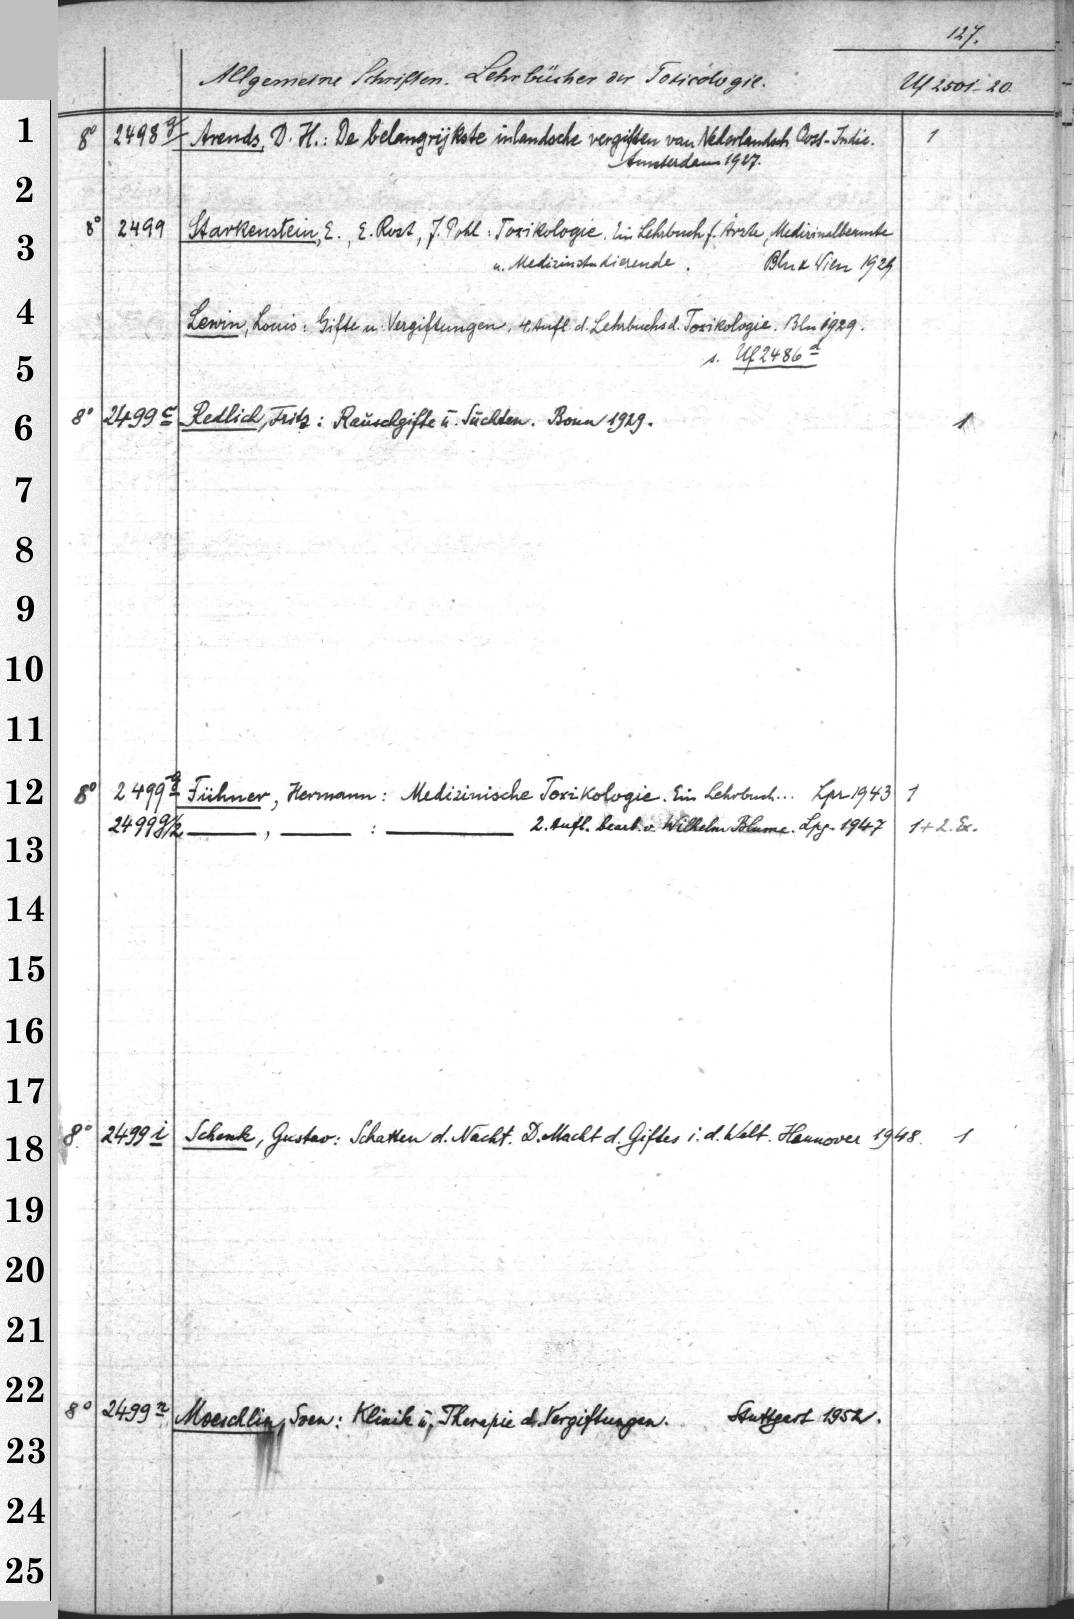 127.
Allgemeine Schriften. Lehrbücher der Toxicologie. Uf 2501-20.
1
8° 2498 g Arends, D. H.: De belangrijkste inlandsche vergiften van Nederlandsch Oost-Indie. 1
Amsterdam 1927.
2
8° 2499 Starkenstein, E., E. Rost, J. Pohl: Toxikologie. Ein Lehrbuch f. Ärzte, Medizinalbeamte
3
u. Medizinstudierende. Bln u Wien 1929
4
Lewin, Louis: Gifte u. Vergiftungen. 4. Aufl d. Lehrbuchs d. Toxikologie. Bln 1929.
s. Uf 2486 d
5
8° 2499 c Redlich, Fritz: Rauschgifte u. Suchten. Bonn 1929. 1
6
7
8
9
10
11
12
8° 2499 g Führner, Hermann: Medizinische Toxikologie. Ein Lehrbuch... Lpz 1943 1
2499 g/2 —, — : — 2. Aufl. bearb. v. Wilhelm Blume. Lpg. 1947 1+2. Ex.
13
14
15
16
17
8° 2499 i Schenk, Gustav: Schatten d. Nacht. D. Macht d. Giftes i. d. Welt. Hannover 1948. 1
18
19
20
21
22
8° 2499 n Moeschlin, Sven: Klinik u. Therapie d. Vergiftungen. Stuttgart 1952.
23
24
25